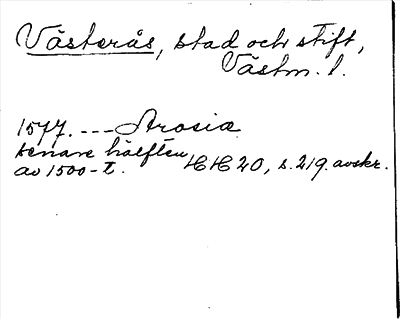 Västerås, stad och stift,
Västm. l.
1577. --- Arosia
senare hälften
av 1500-t. HH 20, s. 219. avskr.